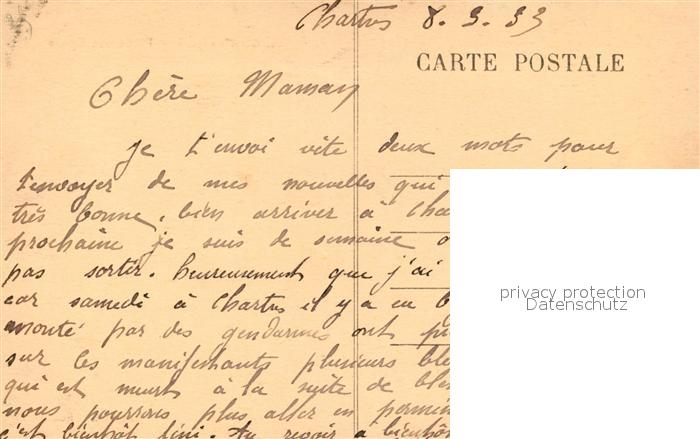 Chartres 8.9.33
CARTE POSTALE
Chère Maman
Je t'envoi vite deux mots pour
t'envoyer de mes nouvelles qui
très bonne. bien arriver à Cha
prochaine je suis de semaine
pas sortir. heureusement que j'ai
privacy protection
Datenschutz
car samedi à Chartres il y a eu
monté par des gendarmes ont
sur les manifestants plusieurs ble
qui est mort à la suite de ble
nous pourrons plus aller en permi
c'est bientôt fini. tu revoir à bientôt